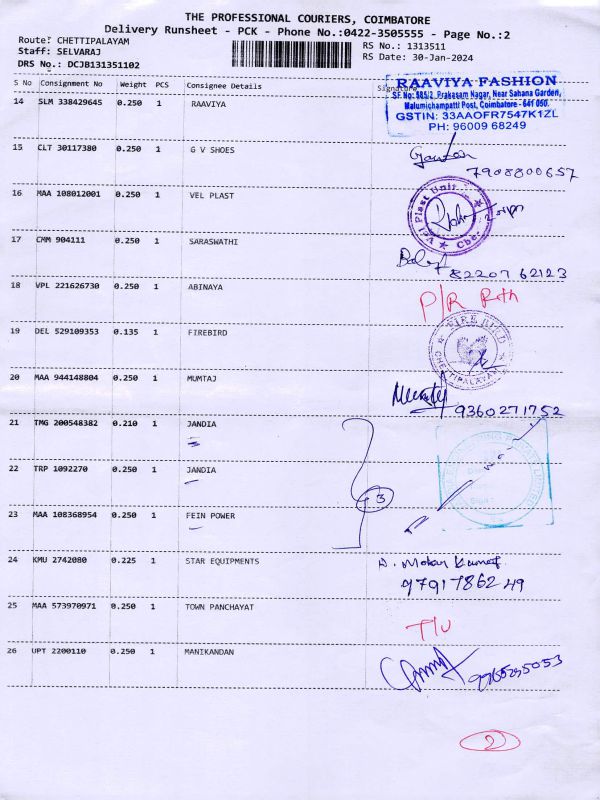 THE PROFESSIONAL COURIERS, COIMBATORE
Delivery Runsheet - PCK - Phone No.:0422-3505555 - Page No.:2
Route: CHETTIPALAYAM
Staff: SELVARAJ
RS No.: 1313511
DRS No.: DCJB131351102
RS Date: 30-Jan-2024
S No Consignment No Weight PCS Consignee Details Signature
RAAVIYA FASHION
S.F.No: 585/2, Prakasam Nagar, Near Sahana Garden,
Malumichampatti Post, Coimbatore - 641 050.
GSTIN: 33AAOFR7547K1ZL
PH: 96009 68249
14 SLM 338429645 0.250 1 RAAVIYA
15 CLT 30117380 0.250 1 G V SHOES
7908800657
16 MAA 108012001 0.250 1 VEL PLAST
VPI Plast Unit
Cbe.
17 CMM 904111 0.250 1 SARASWATHI
82207 62123
18 VPL 221626730 0.250 1 ABINAYA
P/R Rth
19 DEL 529109353 0.135 1 FIREBIRD
FIRE BIRD
CHETTIPALAYAM
20 MAA 944148804 0.250 1 MUMTAJ
9360271752
21 TMG 200548382 0.210 1 JANDIA
22 TRP 1092270 0.250 1 JANDIA
3
23 MAA 108368954 0.250 1 FEIN POWER
24 KMU 2742080 0.225 1 STAR EQUIPMENTS
A. Mohan Kumar
9791786249
25 MAA 573970971 0.250 1 TOWN PANCHAYAT
T/U
26 UPT 2200110 0.250 1 MANIKANDAN
2